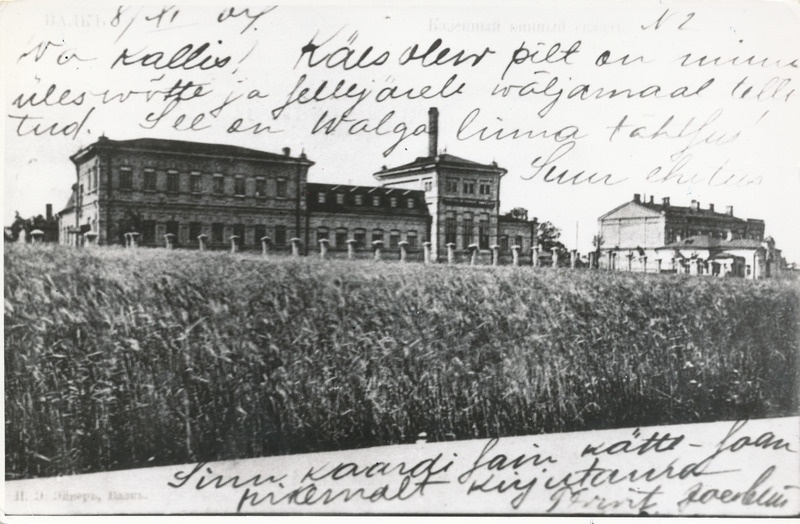 ВАЛКЪ 8/XI 04 Казенный винный складъ. N 2
Wa kallis! Käesolew pilt on minu
üleswõtte ja selle järele wäljamaal telli
tud. See on Walga linna tähtjus!
Suur ehitus
Sinu kaardi sain kätte - Saan
pikemalt kirjutama
П. Э. Эйверъ, Валкъ.